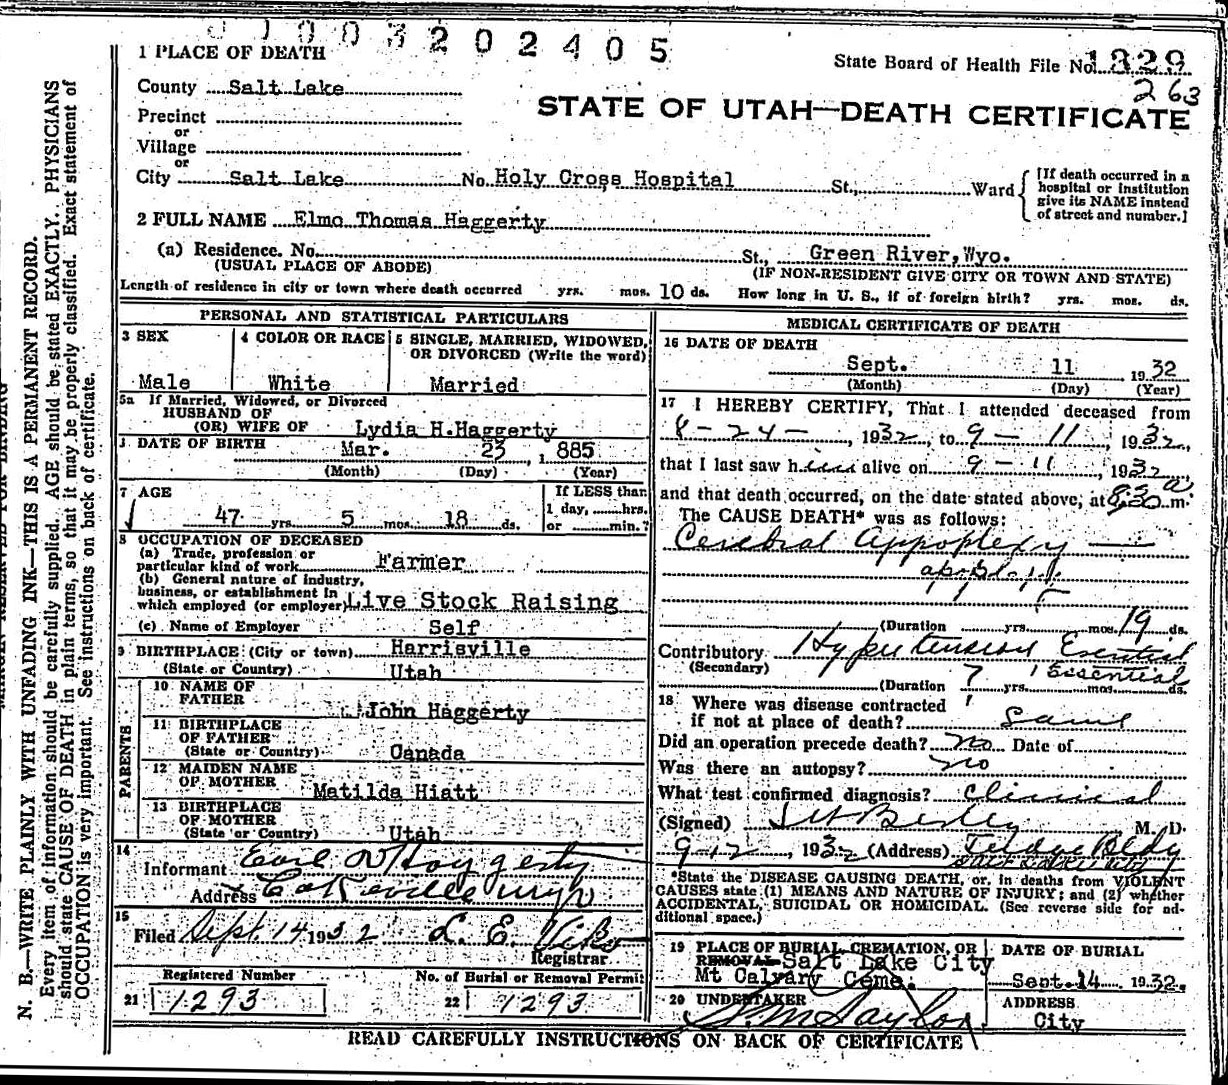 1003202405
1 PLACE OF DEATH
State Board of Health File No. 1329
263
County Salt Lake
STATE OF UTAH—DEATH CERTIFICATE
Precinct
or
Village
or
City Salt Lake No. Holy Cross Hospital St., Ward
[If death occurred in a
hospital or institution
give its NAME instead
of street and number.]
2 FULL NAME Elmo Thomas Haggerty
(a) Residence. No. St., Green River, Wyo.
(USUAL PLACE OF ABODE) (IF NON-RESIDENT GIVE CITY OR TOWN AND STATE)
Length of residence in city or town where death occurred yrs. mos. 10 ds. How long in U. S., if of foreign birth? yrs. mos. ds.
PERSONAL AND STATISTICAL PARTICULARS
3 SEX
Male
4 COLOR OR RACE
White
5 SINGLE, MARRIED, WIDOWED,
OR DIVORCED (Write the word)
Married
5a If Married, Widowed, or Divorced
HUSBAND OF
(OR) WIFE OF Lydia H. Haggerty
DATE OF BIRTH Mar. 23, 1885
(Month) (Day) (Year)
7 AGE
47 yrs. 5 mos. 18 ds.
If LESS than
1 day, hrs.
or min.?
8 OCCUPATION OF DECEASED
(a) Trade, profession or
particular kind of work Farmer
(b) General nature of industry,
business, or establishment in
which employed (or employer) Live Stock Raising
(c) Name of Employer Self
9 BIRTHPLACE (City or town) Harrisville
(State or Country) Utah
PARENTS
10 NAME OF
FATHER John Haggerty
11 BIRTHPLACE
OF FATHER
(State or Country) Canada
12 MAIDEN NAME
OF MOTHER Matilda Hiatt
13 BIRTHPLACE
OF MOTHER
(State or Country) Utah
14
Informant Earl Haggerty
Address Cokeville Wyo
15
Filed Sept. 14 1932 L. E. Viko
Registrar
Registered Number
21 1293
No. of Burial or Removal Permit
22 1293
MEDICAL CERTIFICATE OF DEATH
16 DATE OF DEATH
Sept. 11 1932
(Month) (Day) (Year)
17 I HEREBY CERTIFY, That I attended deceased from
8-24-, 1932, to 9-11, 1932,
that I last saw him alive on 9-11, 1932
and that death occurred, on the date stated above, at 8:30 a m.
The CAUSE DEATH* was as follows:
Cerebral Appoplexy
apoplexy
(Duration yrs. mos. 19 ds.
Contributory Hypertension Esential
(Secondary) Essential
(Duration 7 yrs. mos. ds.
18 Where was disease contracted
if not at place of death? Same
Did an operation precede death? No Date of
Was there an autopsy? No
What test confirmed diagnosis? Clinical
(Signed) M. D.
9-12, 1932 (Address) Bldg
Salt Lake City
*State the DISEASE CAUSING DEATH, or, in deaths from VIOLENT
CAUSES state (1) MEANS AND NATURE OF INJURY; and (2) whether
ACCIDENTAL, SUICIDAL OR HOMICIDAL. (See reverse side for ad-
ditional space.)
19 PLACE OF BURIAL, CREMATION, OR
REMOVAL Salt Lake City
Mt Calvary Ceme.
DATE OF BURIAL
Sept. 14 1932.
20 UNDERTAKER
Taylor
ADDRESS
City
READ CAREFULLY INSTRUCTIONS ON BACK OF CERTIFICATE
N. B.—WRITE PLAINLY WITH UNFADING INK—THIS IS A PERMANENT RECORD.
Every item of information should be carefully supplied. AGE should be stated EXACTLY. PHYSICIANS
should state CAUSE OF DEATH in plain terms, so that it may be properly classified. Exact statement of
OCCUPATION is very important. See instructions on back of certificate.